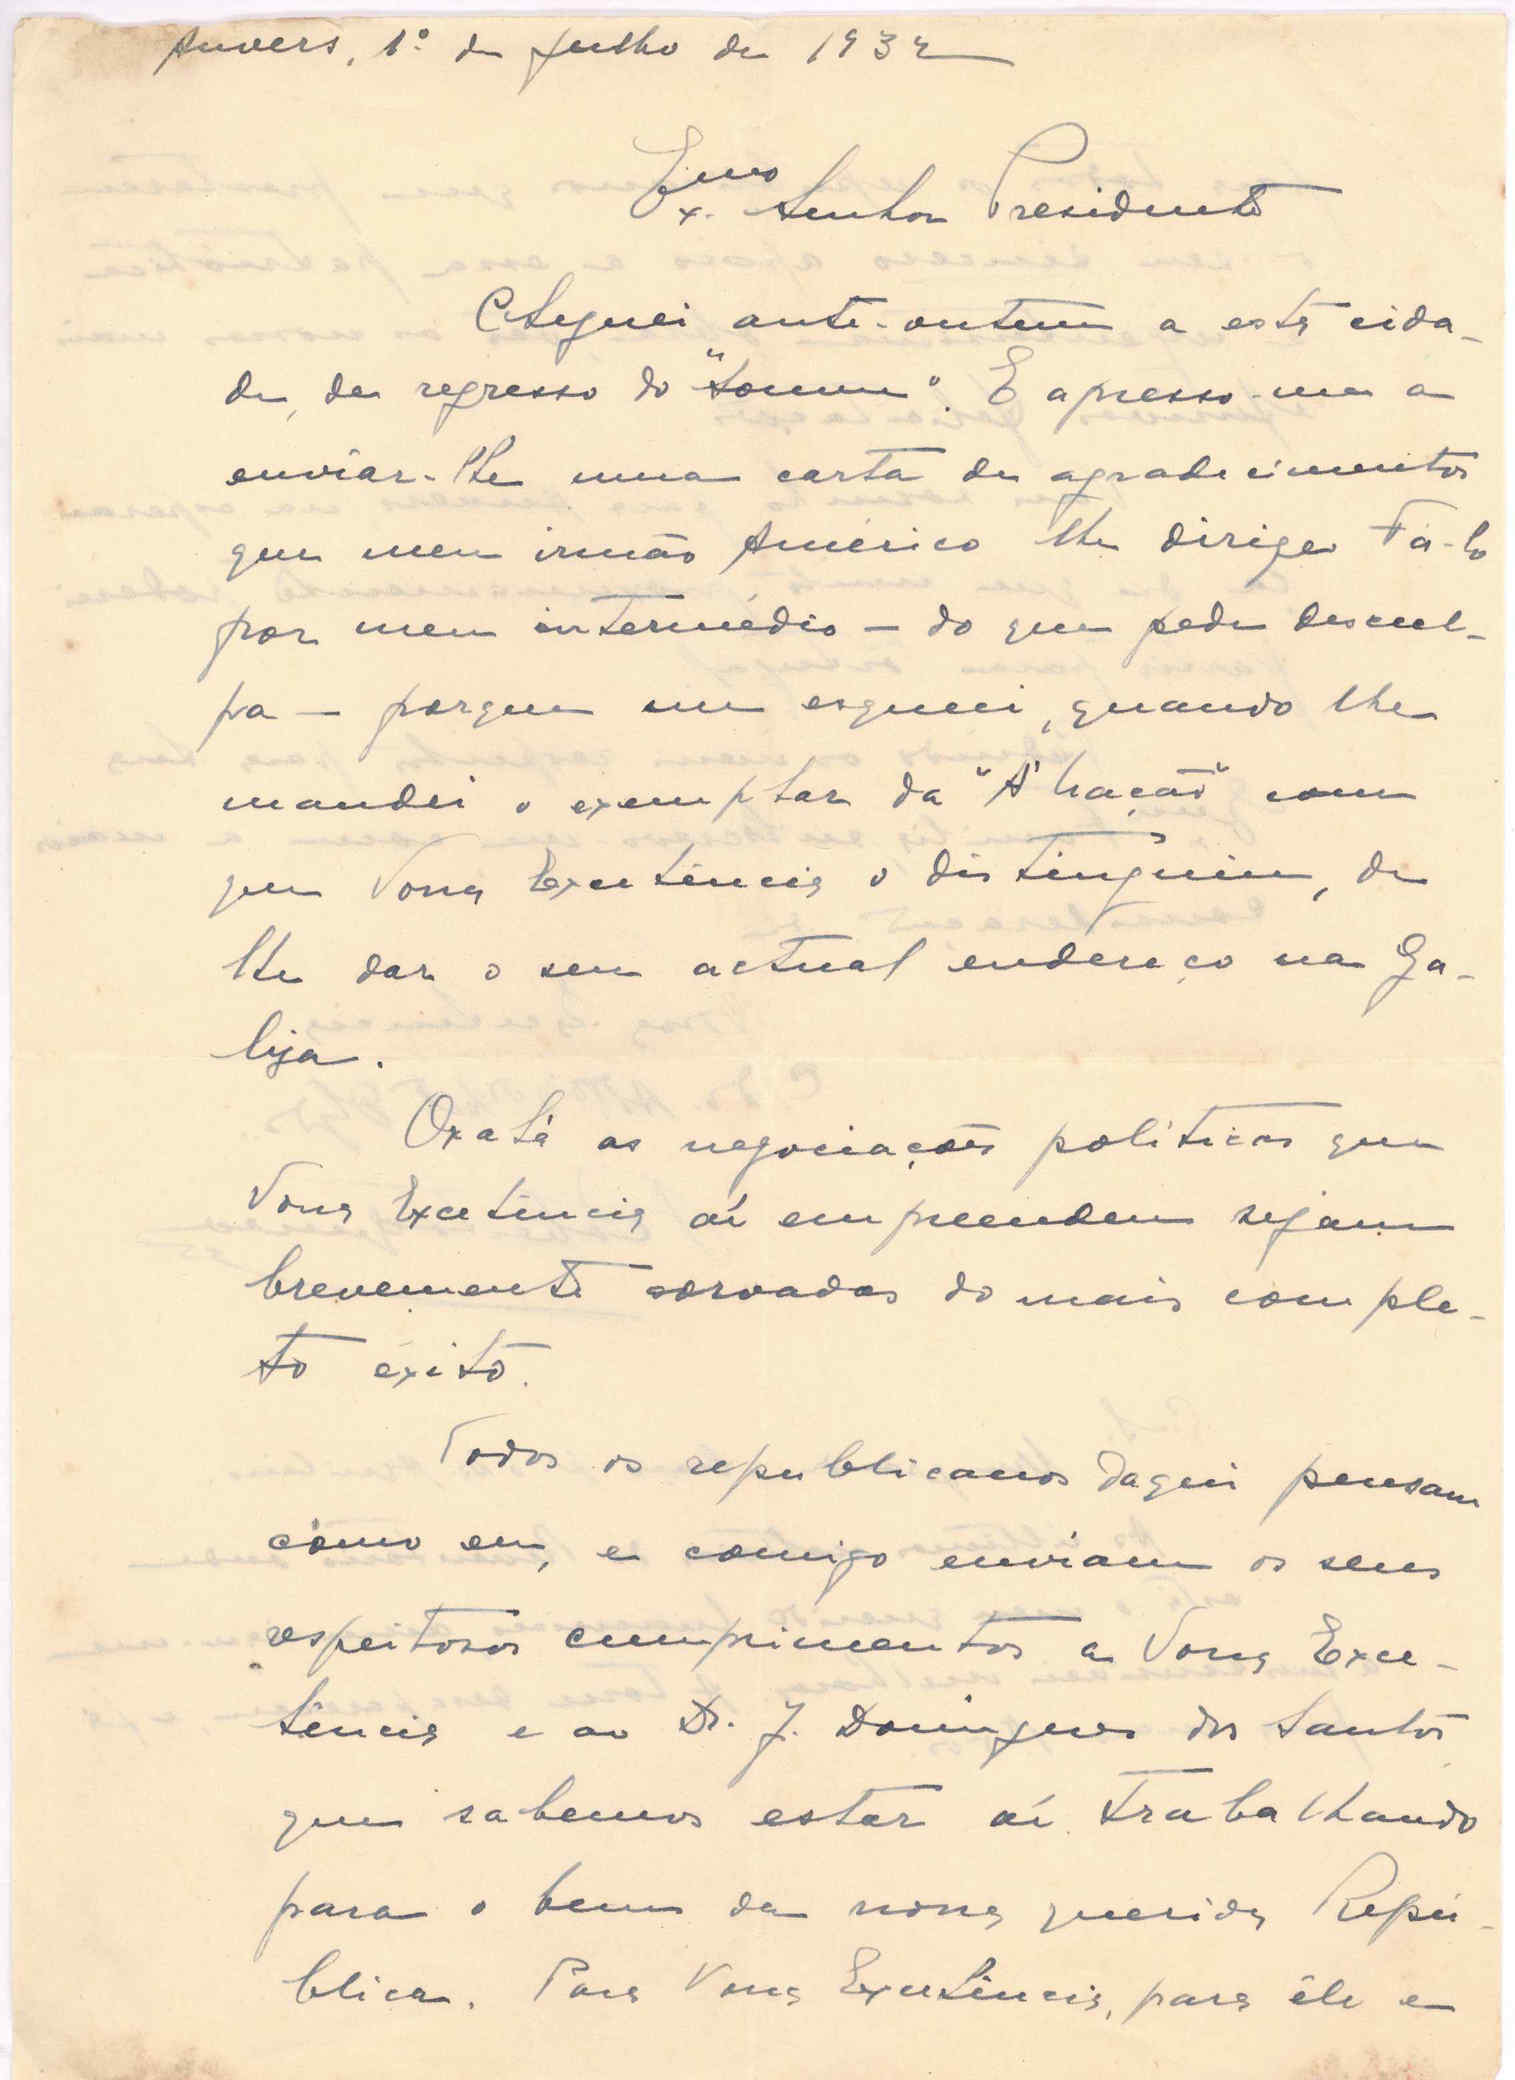 Anvers, 1º de Julho de 1932
Exmo Senhor Presidente
Cheguei ante-ontem a esta cida-
de, de regresso do "Somme". E apresso-me a
enviar-lhe uma carta de agradecimentos
que meu irmão Américo lhe dirige. Fá-lo
por meu intermédio — do que pede descul-
pa — porque me esqueci, quando lhe
mandei o exemplar da "A Nação" com
que Vossa Excelência o distinguiu, de
lhe dar o seu actual endereço na Ga-
liza.
Oxalá as negociações políticas que
Vossa Excelência aí empreendem sejam
brevemente coroadas do mais comple-
to exito.
Todos os republicanos daqui pensam
como eu, e comigo enviam os seus
respeitosos cumprimentos a Vossa Exce-
lência e ao Dr. J. Domingues dos Santos
que sabemos estar aí trabalhando
para o bem da nossa querida Repú-
blica. Para Vossa Excelência, para êle e